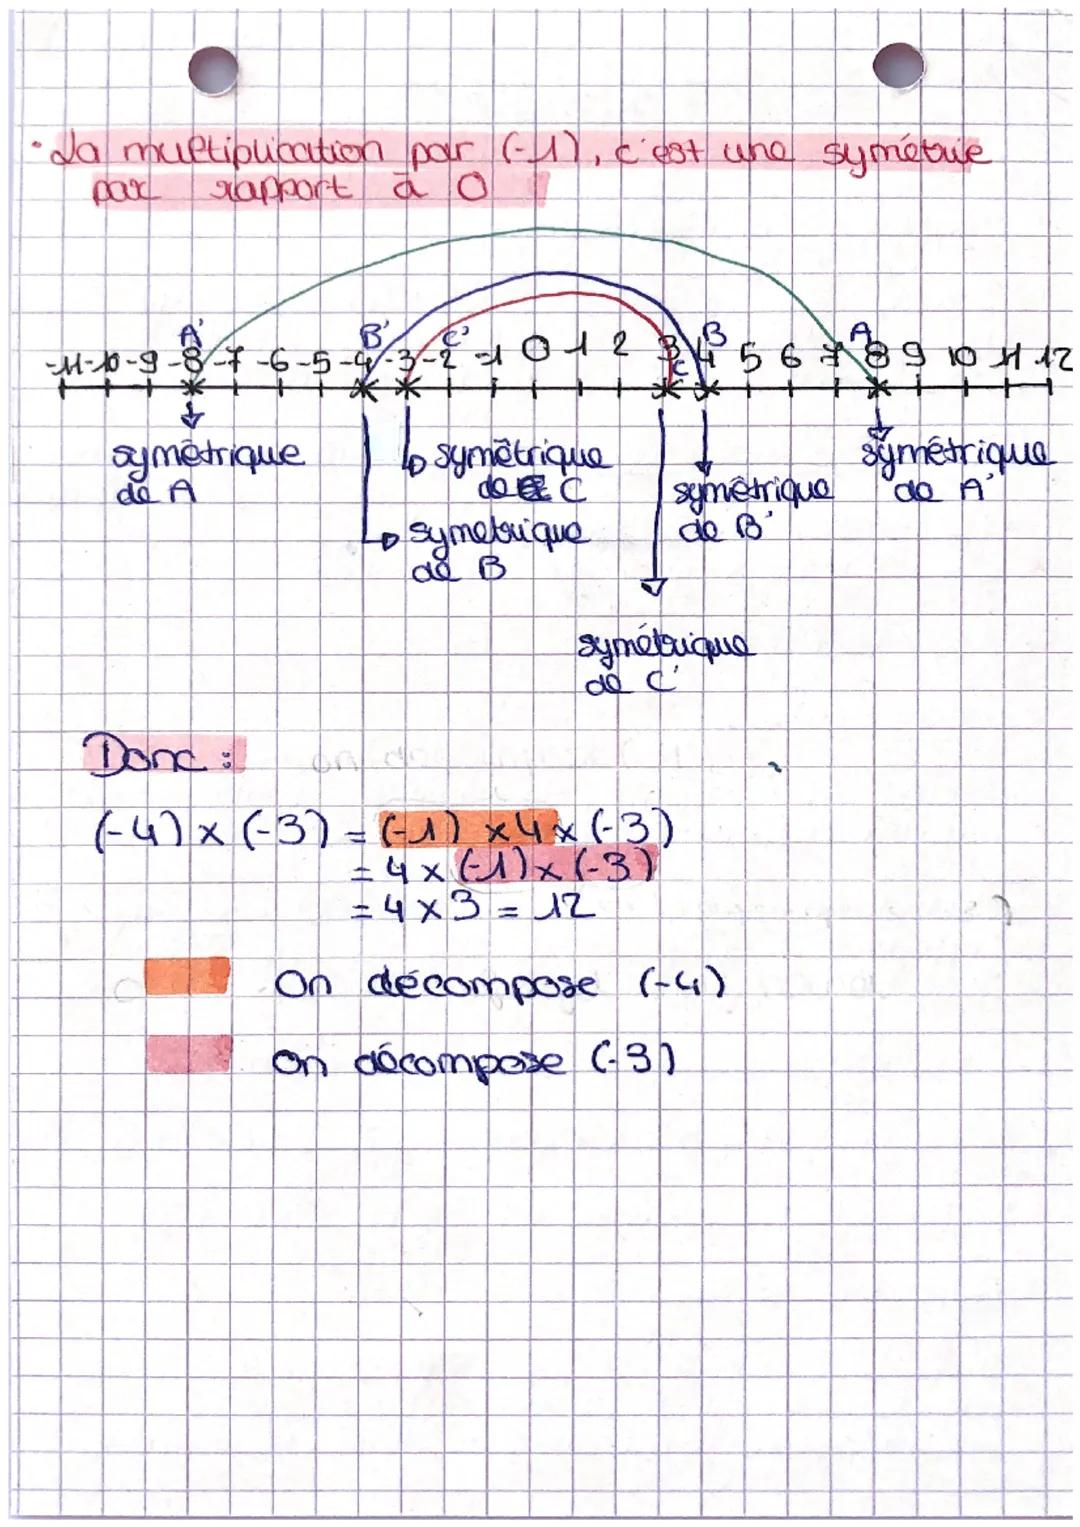 • La multiplication par (-1), c'est une symétrie
par rapport à 0
A' B' C' B A
-11 -10 -9 -8 -7 -6 -5 -4 -3 -2 -1 0 1 2 3 4 5 6 7 8 9 10 11 12
C
symétrique
de A
symétrique
de C
symétrique
de B
symétrique
de B'
symétrique
de A'
symétrique
de C'
Donc :
(-4) × (-3) = (-1) × 4 × (-3)
= 4 × (-1) × (-3)
= 4 × 3 = 12
On décompose (-4)
On décompose (-3)